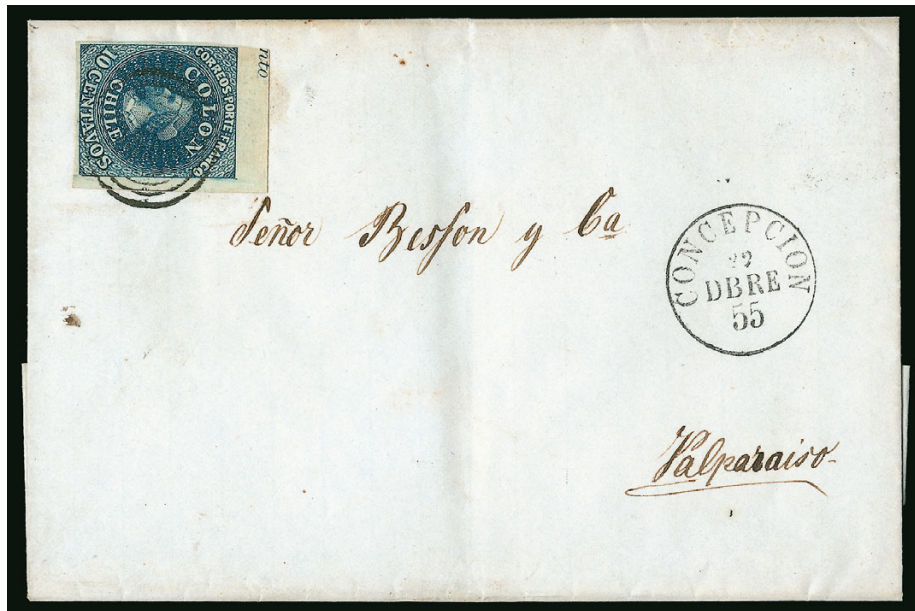 nto
CORREOS PORTE FRANCO
COLON
CHILE
10 CENTAVOS
Señor Besson y Ca
CONCEPCION
22
DBRE
55
Valparaiso